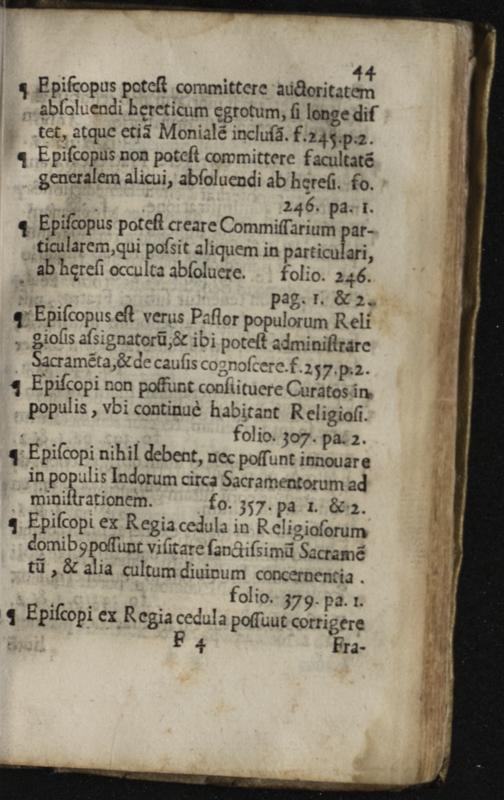 44
¶ Epiſcopus poteſt committere auctoritatem
abſoluendi hęreticum ęgrotum, ſi longe diſ
tet, atque etiã Monialẽ incluſã. f.245.p.2.
¶ Epiſcopus non poteſt committere facultatẽ
generalem alicui, abſoluendi ab hęreſi. fo.
246. pa. 1.
¶ Epiſcopus poteſt creare Commiſſarium par-
ticularem,qui poſsit aliquem in particulari,
ab hęreſi occulta abſoluere. folio. 246.
pag. 1. & 2.
¶ Epiſcopus eſt verus Paſtor populorum Reli
gioſis aſsignatorũ,& ibi poteſt adminiſtrare
Sacramẽta,& de cauſis cognoſcere.f.257.p.2.
¶ Epiſcopi non poſſunt conſtituere Curatos in
populis, vbi continuè habitant Religioſi.
folio. 307. pa. 2.
¶ Epiſcopi nihil debent, nec poſſunt innouare
in populis Indorum circa Sacramentorum ad
miniſtrationem. fo. 357. pa 1. & 2.
¶ Epiſcopi ex Regia cedula in Religioſorum
domibꝰ poſſunt viſitare ſanctiſsimũ Sacramẽ
tũ, & alia cultum diuinum concernentia.
folio. 379. pa. 1.
¶ Epiſcopi ex Regia cedula poſſuut corrigere
F 4 Fra-